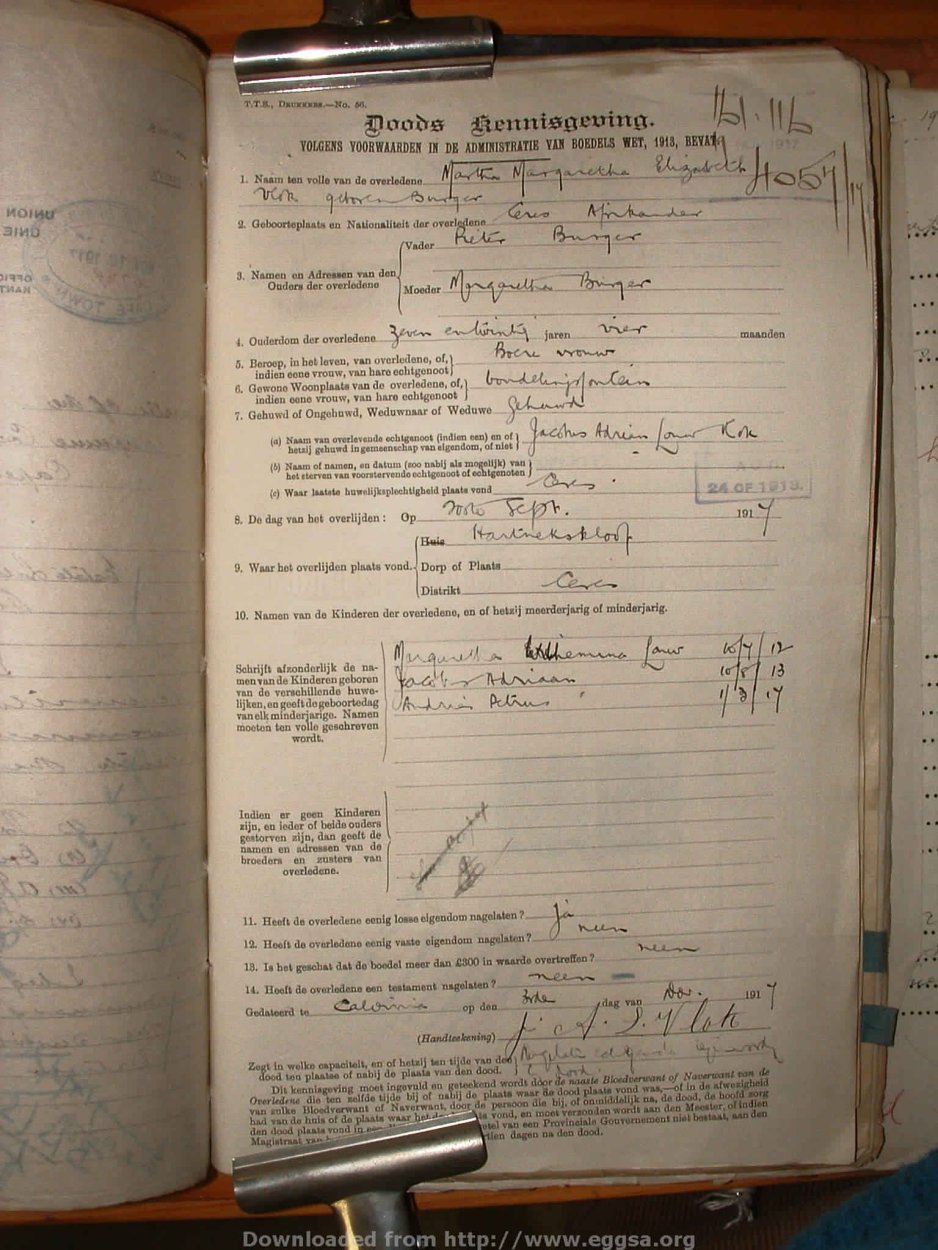 T.T.S., DRUKKERS.—No. 56.
Doods Kennisgeving.
VOLGENS VOORWAARDEN IN DE ADMINISTRATIE VAN BOEDELS WET, 1913, BEVAT.
4057/17
1. Naam ten volle van de overledene Martha Margaretha Elizabeth
Vlok geboren Burger
2. Geboorteplaats en Nationaliteit der overledene Ceres Afrikander
Vader Pieter Burger
3. Namen en Adressen van den Ouders der overledene
Moeder Margaretha Burger
4. Ouderdom der overledene Zeven en twintig jaren vier maanden
5. Beroep, in het leven, van overledene, of, indien eene vrouw, van hare echtgenoot Boere vrouw
6. Gewone Woonplaats van de overledene, of, indien eene vrouw, van hare echtgenoot
7. Gehuwd of Ongehuwd, Weduwnaar of Weduwe Gehuwd
(a) Naam van overlevende echtgenoot (indien een) en of hetzij gehuwd in gemeenschap van eigendom, of niet Jacobus Adrian Louw
(b) Naam of namen, en datum (zoo nabij als mogelijk) van het sterven van voorstervende echtgenoot of echtgenoten
(c) Waar laatste huwelijksplechtigheid plaats vond Ceres
24 OF 1913.
8. De dag van het overlijden: Op Sept. 1917
Huis
9. Waar het overlijden plaats vond. Dorp of Plaats
Distrikt Ceres
10. Namen van de Kinderen der overledene, en of hetzij meerderjarig of minderjarig.
Schrijft afzonderlijk de na-
men van de Kinderen geboren
van de verschillende huwe-
lijken, en geeft de geboortedag
van elk minderjarige. Namen
moeten ten volle geschreven
wordt.
Margaretha Louw 10/7/12
Jacobus Adriaan 10/8/13
Andries Petrus 1/3/17
Indien er geen Kinderen
zijn, en ieder of beide ouders
gestorven zijn, dan geeft de
namen en adressen van de
broeders en zusters van
overledene.
11. Heeft de overledene eenig losse eigendom nagelaten? Ja
12. Heeft de overledene eenig vaste eigendom nagelaten? neen
13. Is het geschat dat de boedel meer dan £300 in waarde overtreffen? neen
14. Heeft de overledene een testament nagelaten? neen
Gedateerd te Calvinia op den 3rde dag van Nov. 1917
(Handteekening) Vlok
Zegt in welke capaciteit, en of hetzij ten tijde van den
dood ten plaatse of nabij de plaats van den dood.
Dit kennisgeving moet ingevuld en geteekend wordt door de naaste Bloedverwant of Naverwant van de
Overledene die ten zelfde tijde bij of nabij de plaats waar de dood plaats vond was,—of in de afwezigheid
van zulke Bloedverwant of Naverwant, door de persoon die bij, of onmiddelik na, de dood, de hoofd zorg
had van de huis of de plaats waar het vond, en moet verzonden wordt aan den Meester, of indien
den dood plaats vond in een van een Provinciale Gouvernement niet bestaat, aan den
Magistraat van dagen na den dood.
Downloaded from http://www.eggsa.org